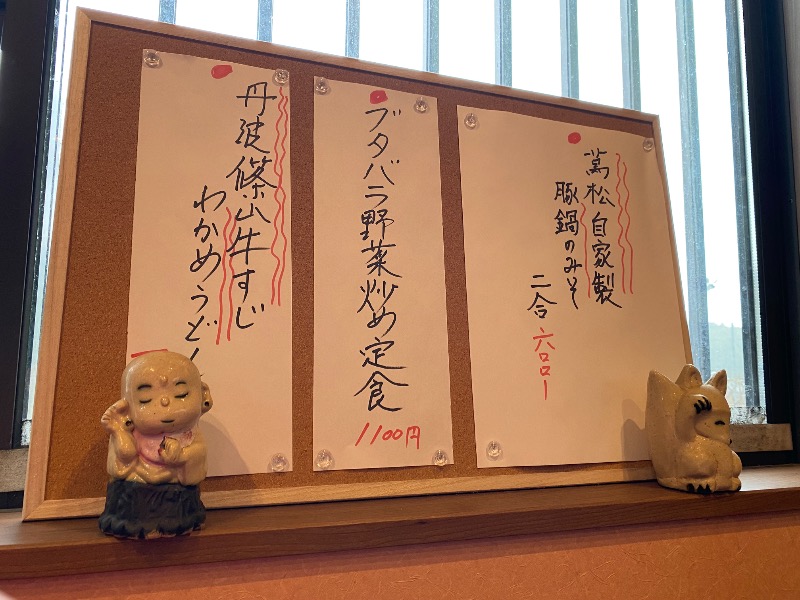 萬松自家製
豚鍋のみそ
二合 六〇〇ー
ブタバラ野菜炒め定食
1100円
丹波篠山牛すじ
わかめうどん